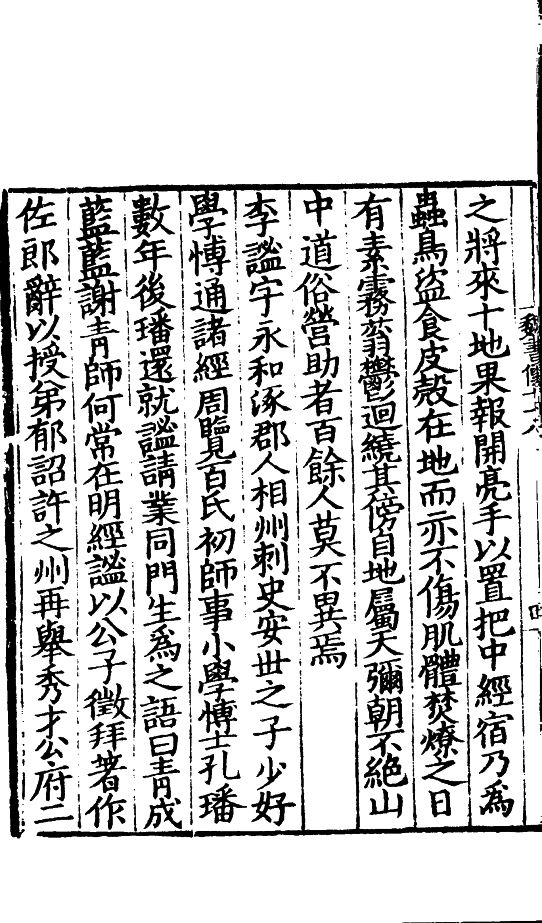 之將來十地果報開亮手以置把中經宿乃爲
蟲鳥盜食皮殼在地而亦不傷肌體焚燎之日
有素霧蓊鬱迴繞其傍自地屬天彌朝不絶山
中道俗營助者百餘人莫不異焉
李謐字永和涿郡人相州刺史安世之子少好
學博通諸經周覽百氏初師事小學博士孔璠
數年後璠還就謐請業同門生爲之語曰青成
藍藍謝青師何常在明經謐以公子徵拜著作
佐郎辭以授弟郁詔許之州再舉秀才公府二